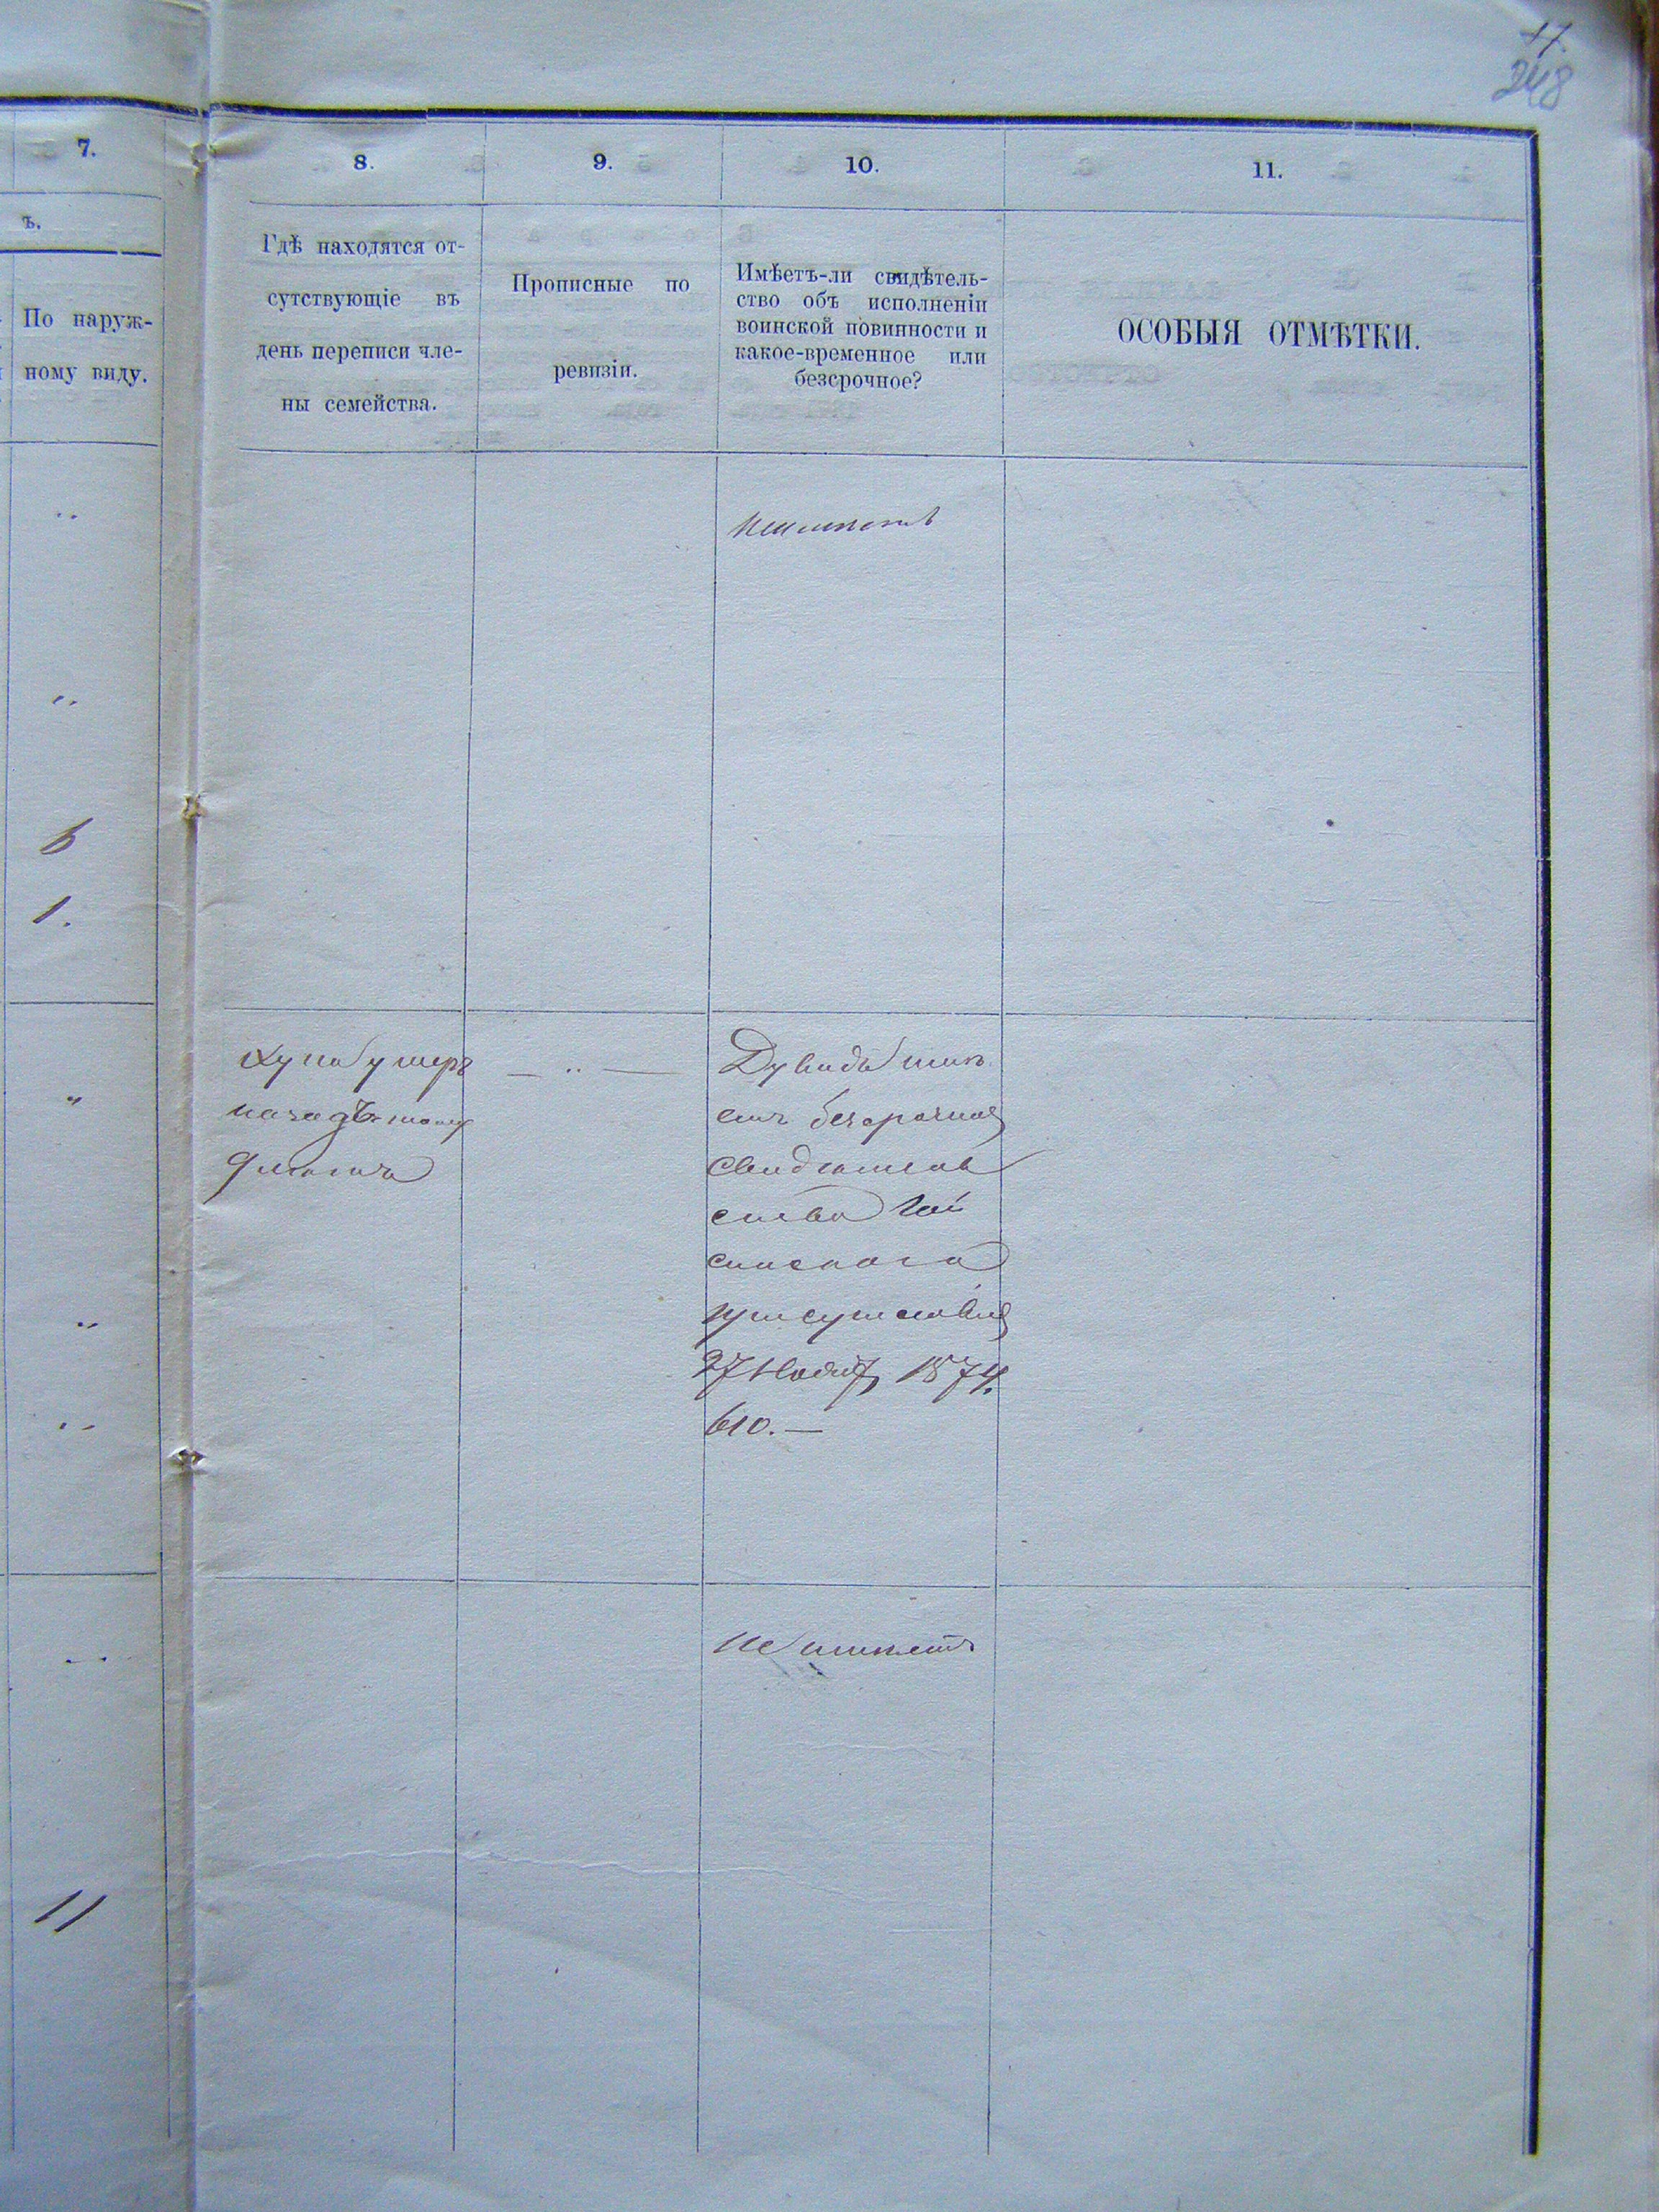 17.
248
7.
8.
9.
10.
11.
ъ.
По наруж-
ному виду.
Гдѣ находятся от-
сутствующіе въ
день переписи чле-
ны семейства.
Прописные по
ревизіи.
Имѣетъ-ли свидѣтель-
ство объ исполненіи
воинской повинности и
какое-временное или
безсрочное?
ОСОБЫЯ ОТМѢТКИ.
6
1.
умеръ
назадъ тому
Дувидъ имѣ
етъ безсрочное
свидѣтель
ство Гай
синскаго
присутствія
27 Нояб. 1874.
610. —
не имѣетъ
11